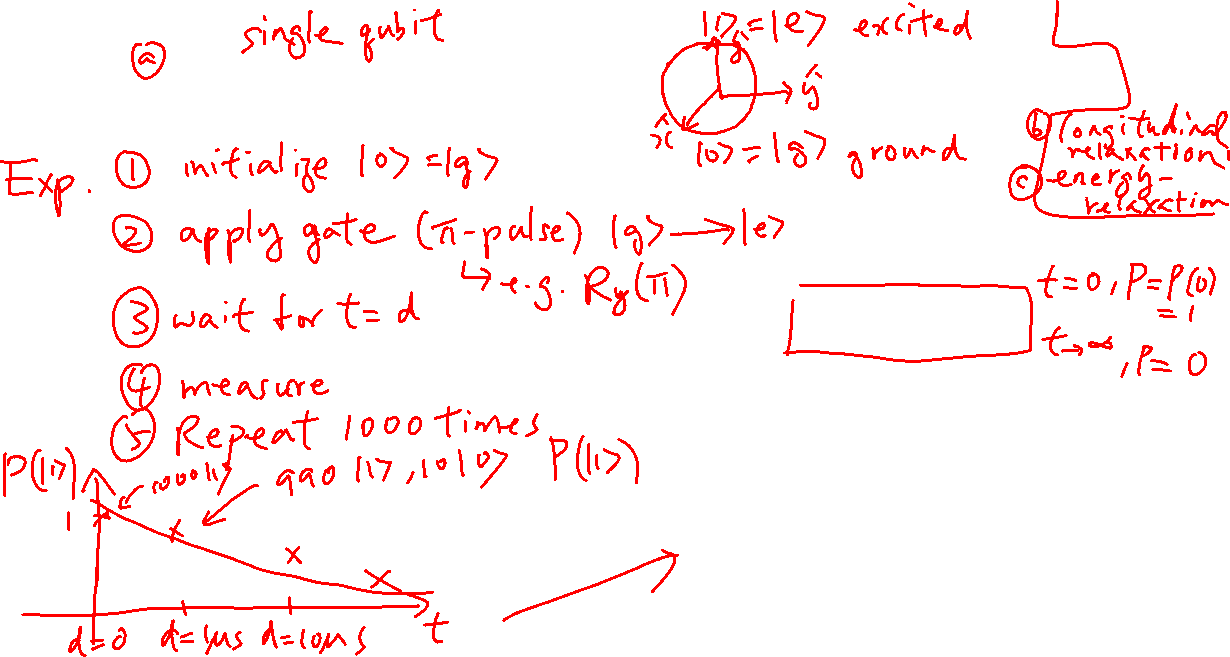 ⓐ single qubit
|1> = |e> excited
ẑ
ŷ
x̂
|0> = |g> ground
ⓑ longitudinal
relaxation
ⓒ energy-
relaxation
Exp. ① initialize |0> = |g>
② apply gate (π-pulse) |g> → |e>
↳ e.g. Ry(π)
③ wait for t = d
④ measure
⑤ Repeat 1000 times
t=0, P=P(0)
=1
t→∞, P=0
P(|1>)
1000 |1>
990 |1>, 10 |0>
P(|1>)
1
d=0 d=1μs d=10μs t